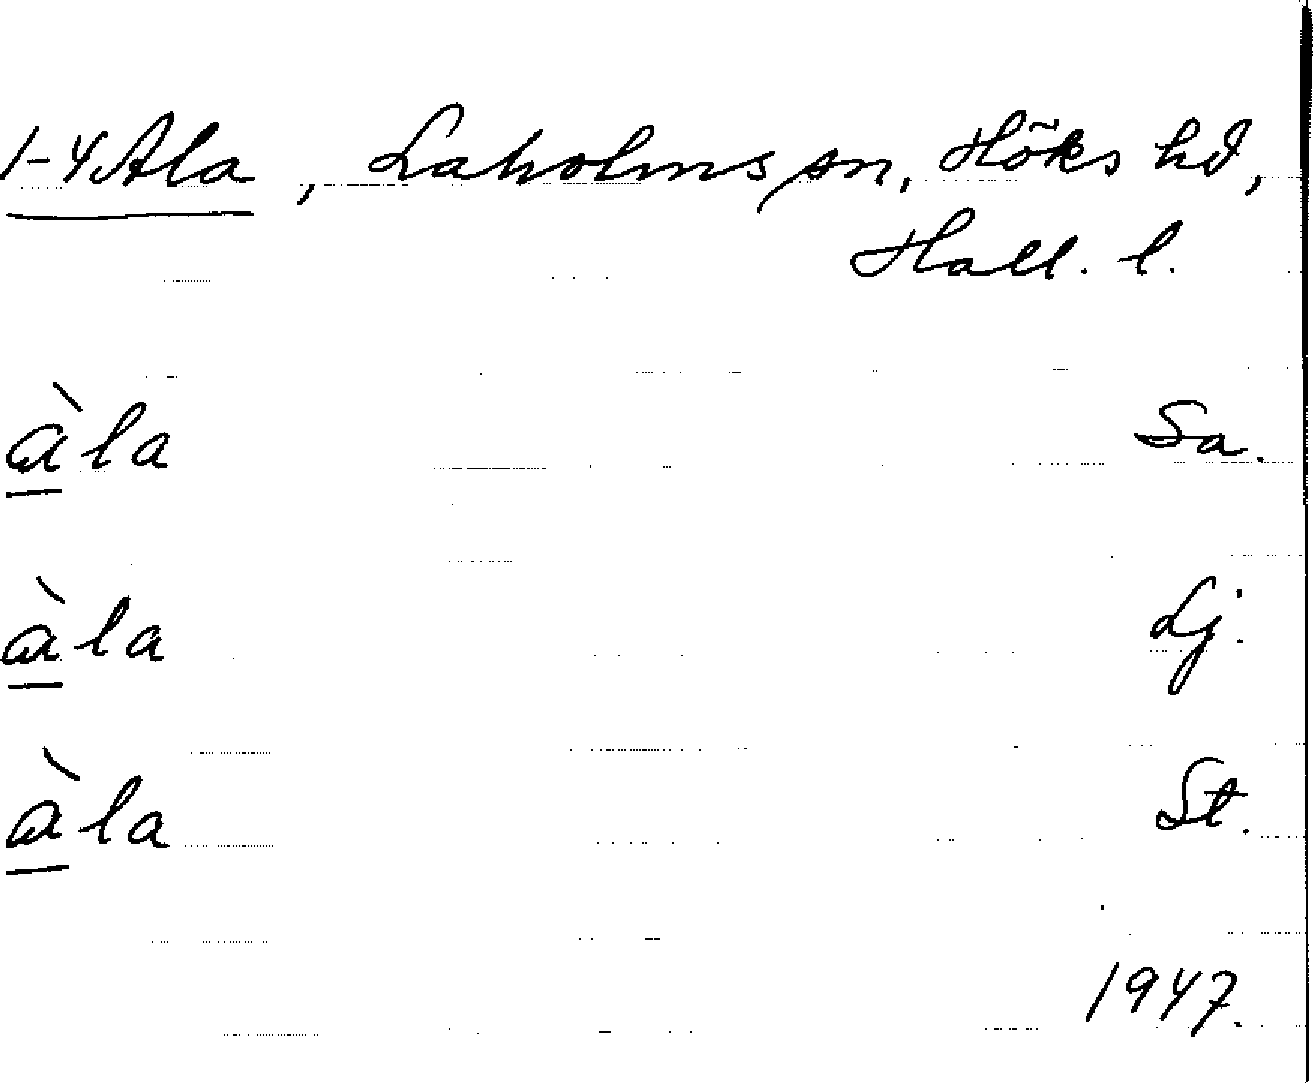 1-4 Ala, Laholms sn, Höks hd,
Hall. l.
àla Sa.
àla Lj.
àla St.
1947.